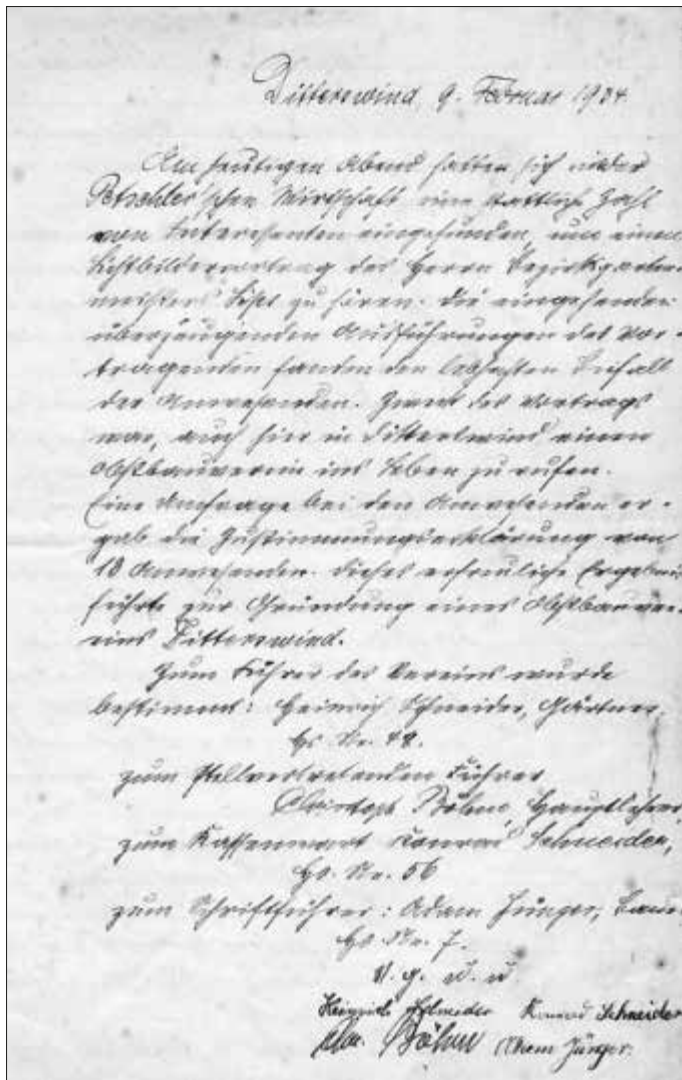 Ditterswind, 9. Februar 1934
Am heutigen Abend hatten sich in der
Petschler'schen Wirtschaft eine stattliche Zahl
von Interessenten eingefunden, um einen
Lichtbildervortrag des Herrn Bezirksgarten-
meisters zu hören. Die eingehenden
überzeugenden Ausführungen des Vor-
tragenden fanden den lebhaften Beifall
der Anwesenden. Zweck des Vortrags
war, auch hier in Ditterswind einen
Obstbauverein ins Leben zu rufen.
Eine Umfrage bei den Anwesenden er-
gab die Zustimmungserklärung von
18 Anwesenden. Dieses erfreuliche Ergebnis
führte zur Gründung eines Obstbauver-
eins Ditterswind.
Zum Führer des Vereins wurde
bestimmt: Heinrich Schneider, Gärtner,
Hs. Nr. 48.
zum stellvertretenden Führer
Christoph Böhm, Hauptlehrer,
zum Kassenwart Konrad Schneider,
Hs. Nr. 56
zum Schriftführer: Adam Jünger, Bauer
Hs. Nr. 7.
V. g. u. u.
Heinrich Schneider Konrad Schneider
Chr. Böhm Adam Jünger.